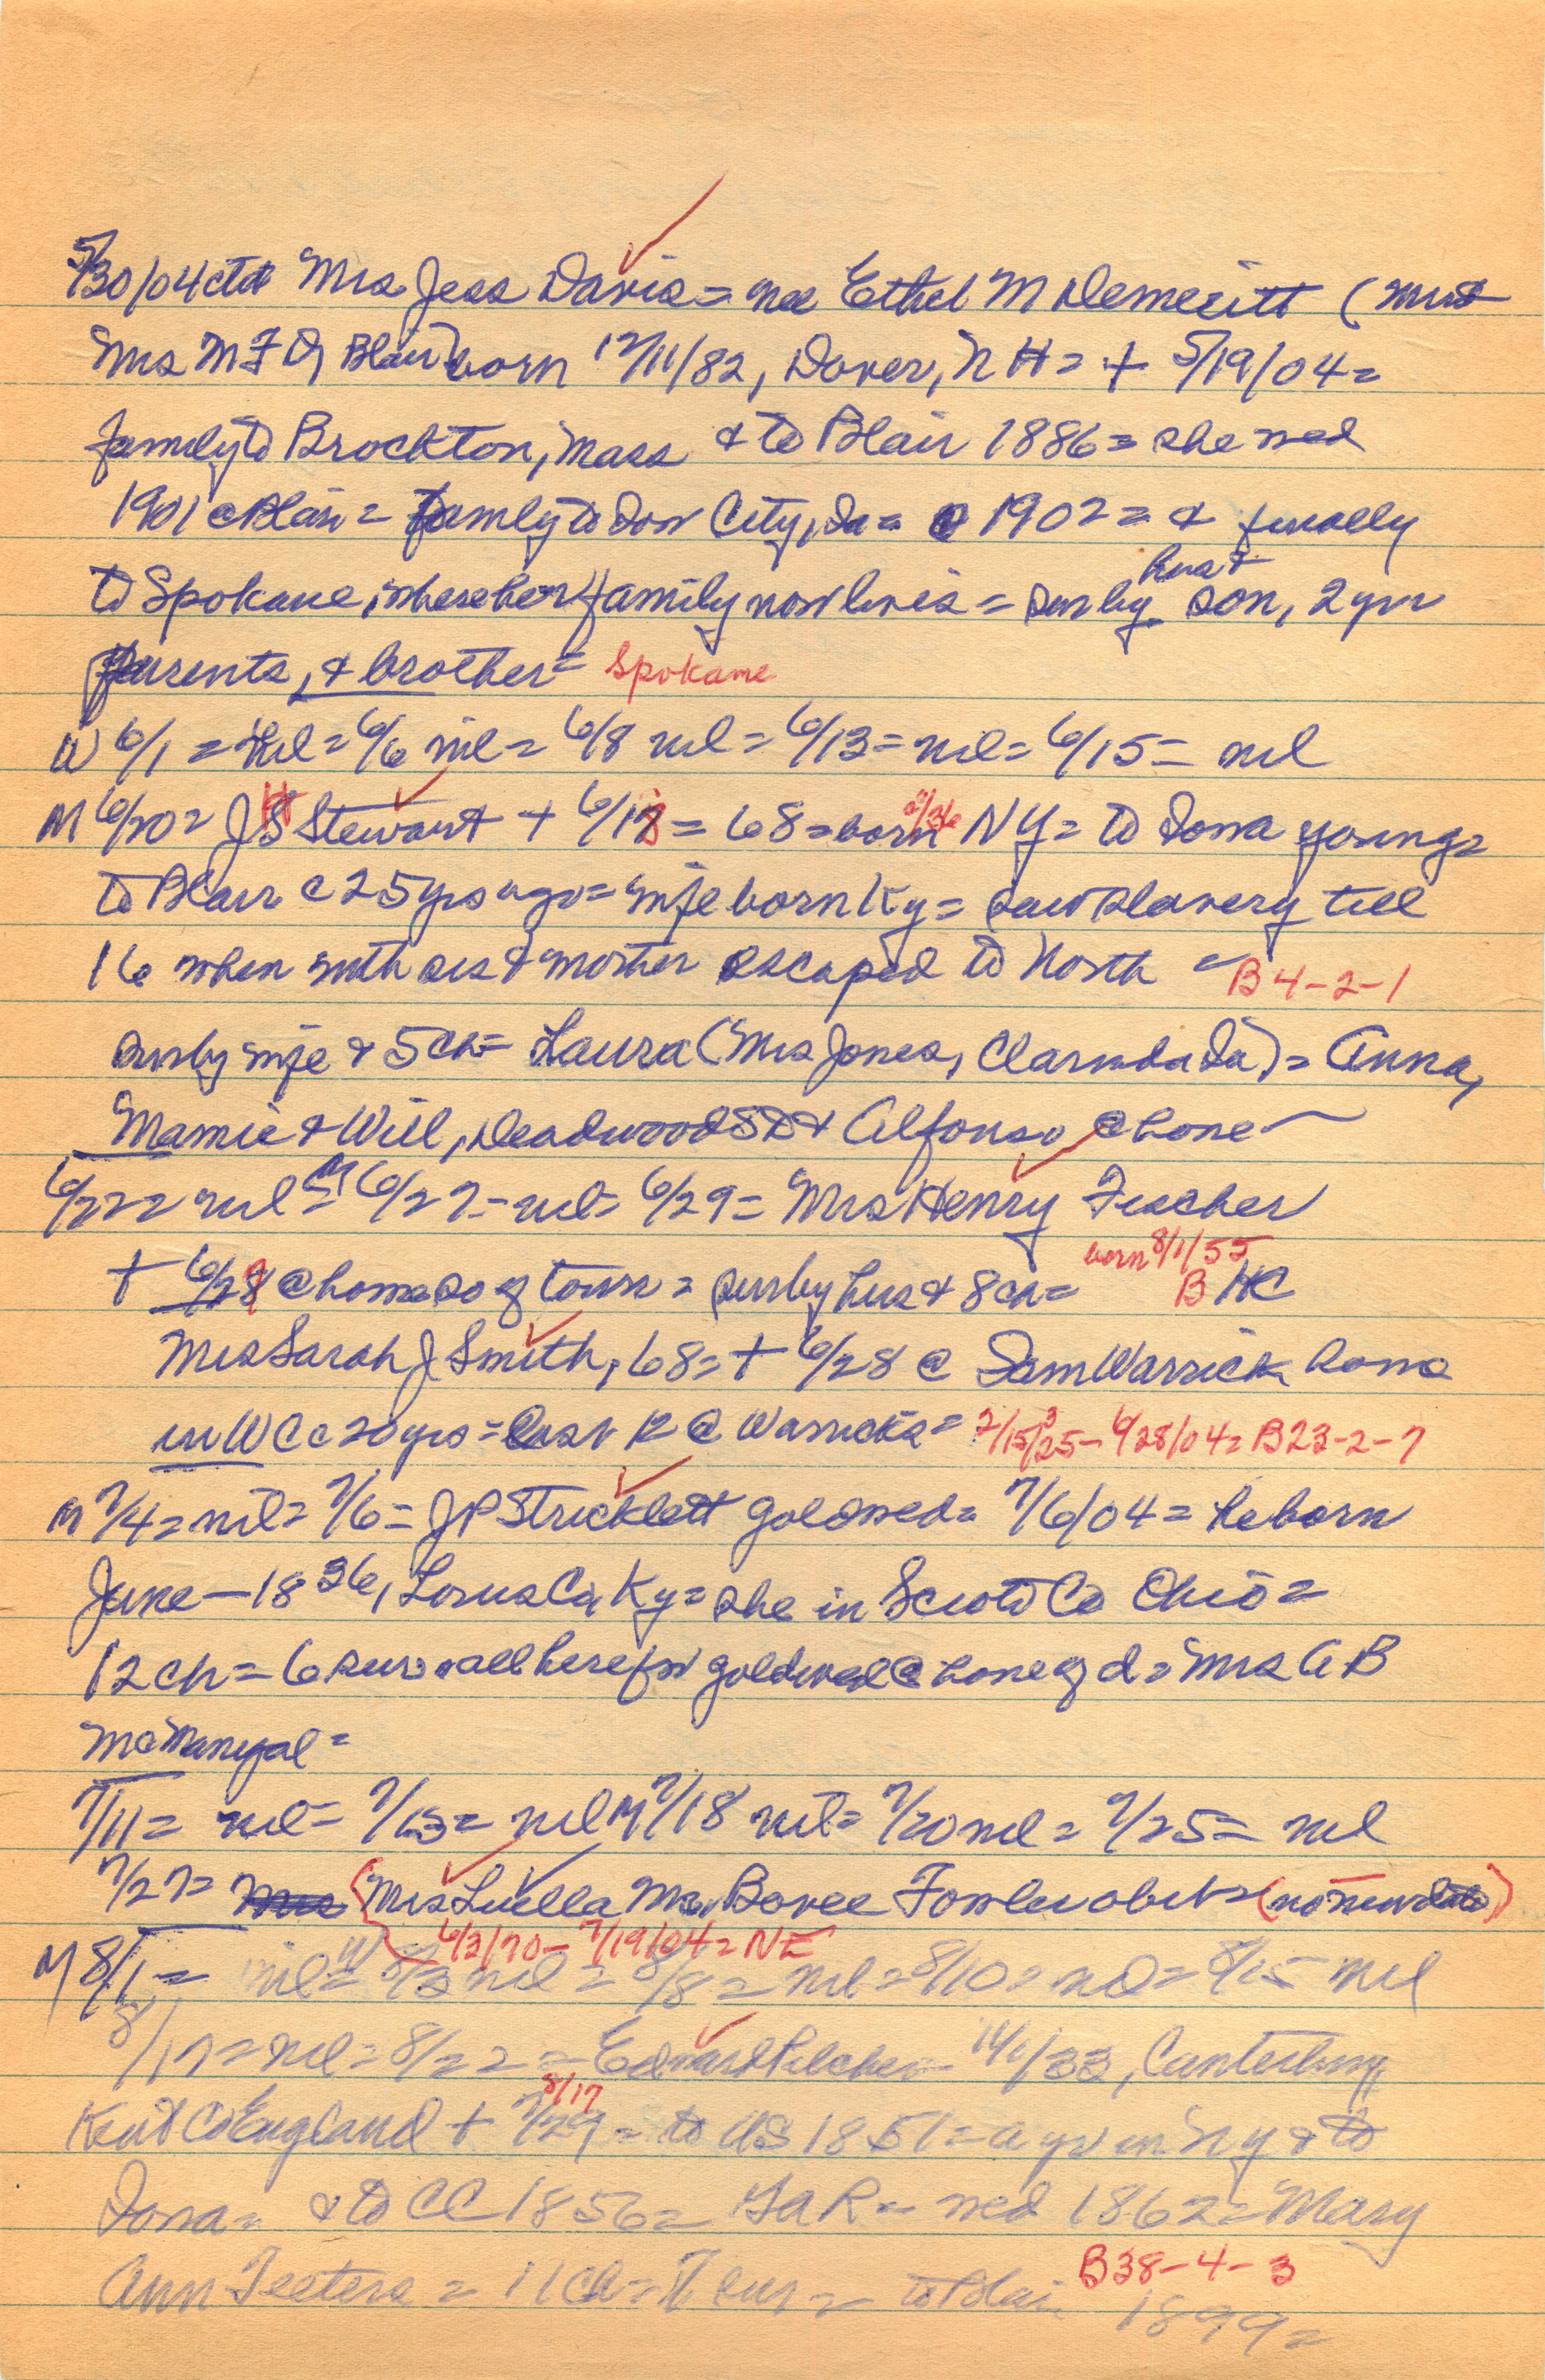 5/30/04 ctd Mrs Jess Davis = nee Ethel M Demeritt (
Mrs M F D, Blair) born 12/11/82, Dover, N H = + 5/19/04 =
family to Brockton, Mass & to Blair 1886 = she wed
1901 @ Blair = family to Iow City, Ia = @ 1902 = & finally
hus &
to Spokane, where her family now lives = surv by son, 2 yrs
parents, & brother = Spokane
W 6/1 = nil = 6/6 nil = 6/8 nil = 6/13 = nil = 6/15 = nil
M 6/20 = J Stewart + 6/18 = 68 = born NY = to Iowa young =
to Blair c 25 yrs ago = wife born Ky = saw slavery till
16 when with sis & mother escaped to North = B 4-2-1
surv by wife & 5 ch = Laura (Mrs Jones, Clarinda Ia) = Anna,
Mamie & Will, Deadwood SD & Alfonso @ home
6/22 = nil = M 6/27 = nil = 6/29 = Mrs Henry Fischer
born 8/1/55
+ 6/27 @ home so of town = surv by hus & 8 ch = B HC
Mrs Sarah J Smith, 68 = + 6/28 @ Sam Warrick home
in WC c 20 yrs = last R @ Warricks = 6/28/04 = B23-2-7
M 7/4 = nil = 7/6 = J P Stricklett gold wed = 7/6/04 = he born
June - 1836, Co, Ky = she in Scioto Co Ohio =
12 ch = 6 surv & all here for gold wed @ home of d = Mrs A B
McManigal =
7/11 = nil = 7/13 = nil M 7/18 nil = 7/20 nil = 7/25 = nil
7/27 = Mrs (Mrs Luella Mc Bovee Fowler obit = (no new data)
6/3/70 - 7/19/04 = NE
M 8/1 = nil = W 8/3 nil = 8/8 = nil = 8/10 = nil = 8/15 nil
8/17 = nil = 8/22 = Edward Pilcher = /33, Canterbury
8/17
Kent Co England + 7/29 = to US 1851 = a yr in N Y & to
Iowa = & to CC 1856 = GAR = wed 1862 = Mary
B38-4-3
Ann Teeters = 11 ch = 7 sur = to Blair 1899 =